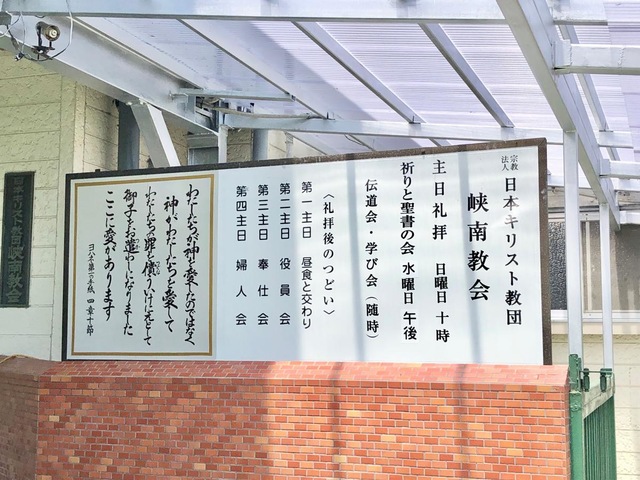 宗教法人 日本キリスト教団
峡南教会
主日礼拝 日曜日 十時
祈りと聖書の会 水曜日 午後
伝道会・学び会（随時）
〈礼拝後のつどい〉
第一主日 昼食と交わり
第二主日 役員会
第三主日 奉仕会
第四主日 婦人会
わたしたちが神を愛したのではなく、
神がわたしたちを愛して
わたしたちの罪を償ういけにえとして
御子をお遣わしになりました
ここに愛があります
ヨハネ第一の手紙 四章十節
日本キリスト教団峡南教会